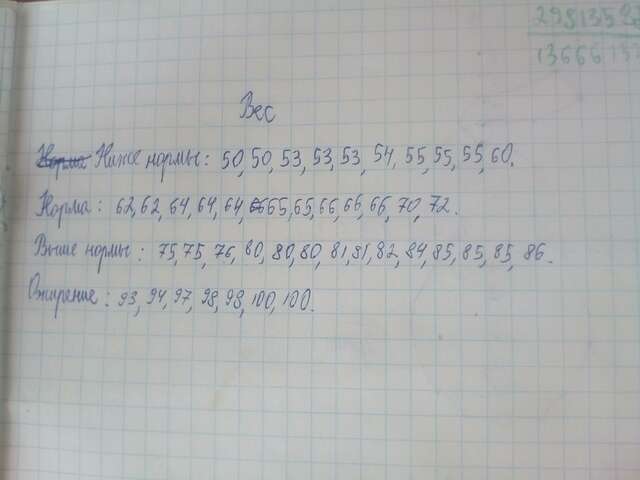 298135
13666
Вес
Ниже нормы: 50, 50, 53, 53, 53, 54, 55, 55, 55, 60.
Норма: 62, 62, 64, 64, 64, 65, 65, 66, 66, 66, 70, 72.
Выше нормы: 75, 75, 76, 80, 80, 80, 81, 81, 82, 84, 85, 85, 85, 86.
Ожирение: 93, 94, 97, 98, 98, 100, 100.